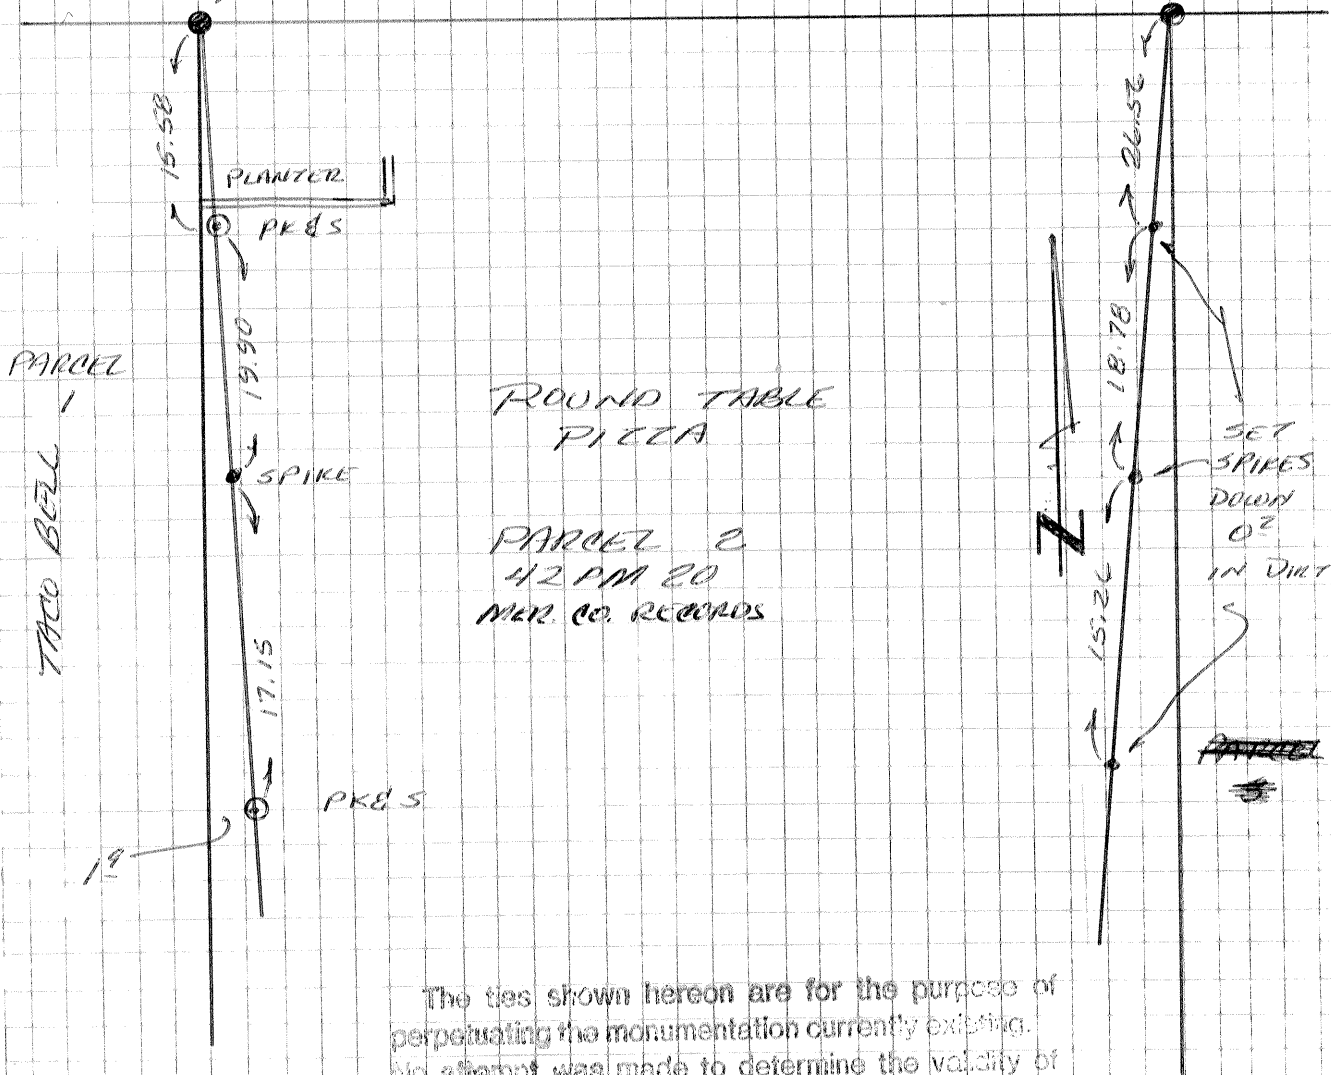 15.58
PLANTER
PK & S
19.90
SPIKE
17.15
PK & S
PARCEL
1
TACO BELL
ROUND TABLE
PIZZA
PARCEL 2
42 PM 20
MER. CO. RECORDS
26.56
18.78
15.26
N
SET
SPIKES
DOWN
0²
IN DIRT
PARCEL
3
The ties shown hereon are for the purpose of
perpetuating the monumentation currently existing.
No attempt was made to determine the validity of